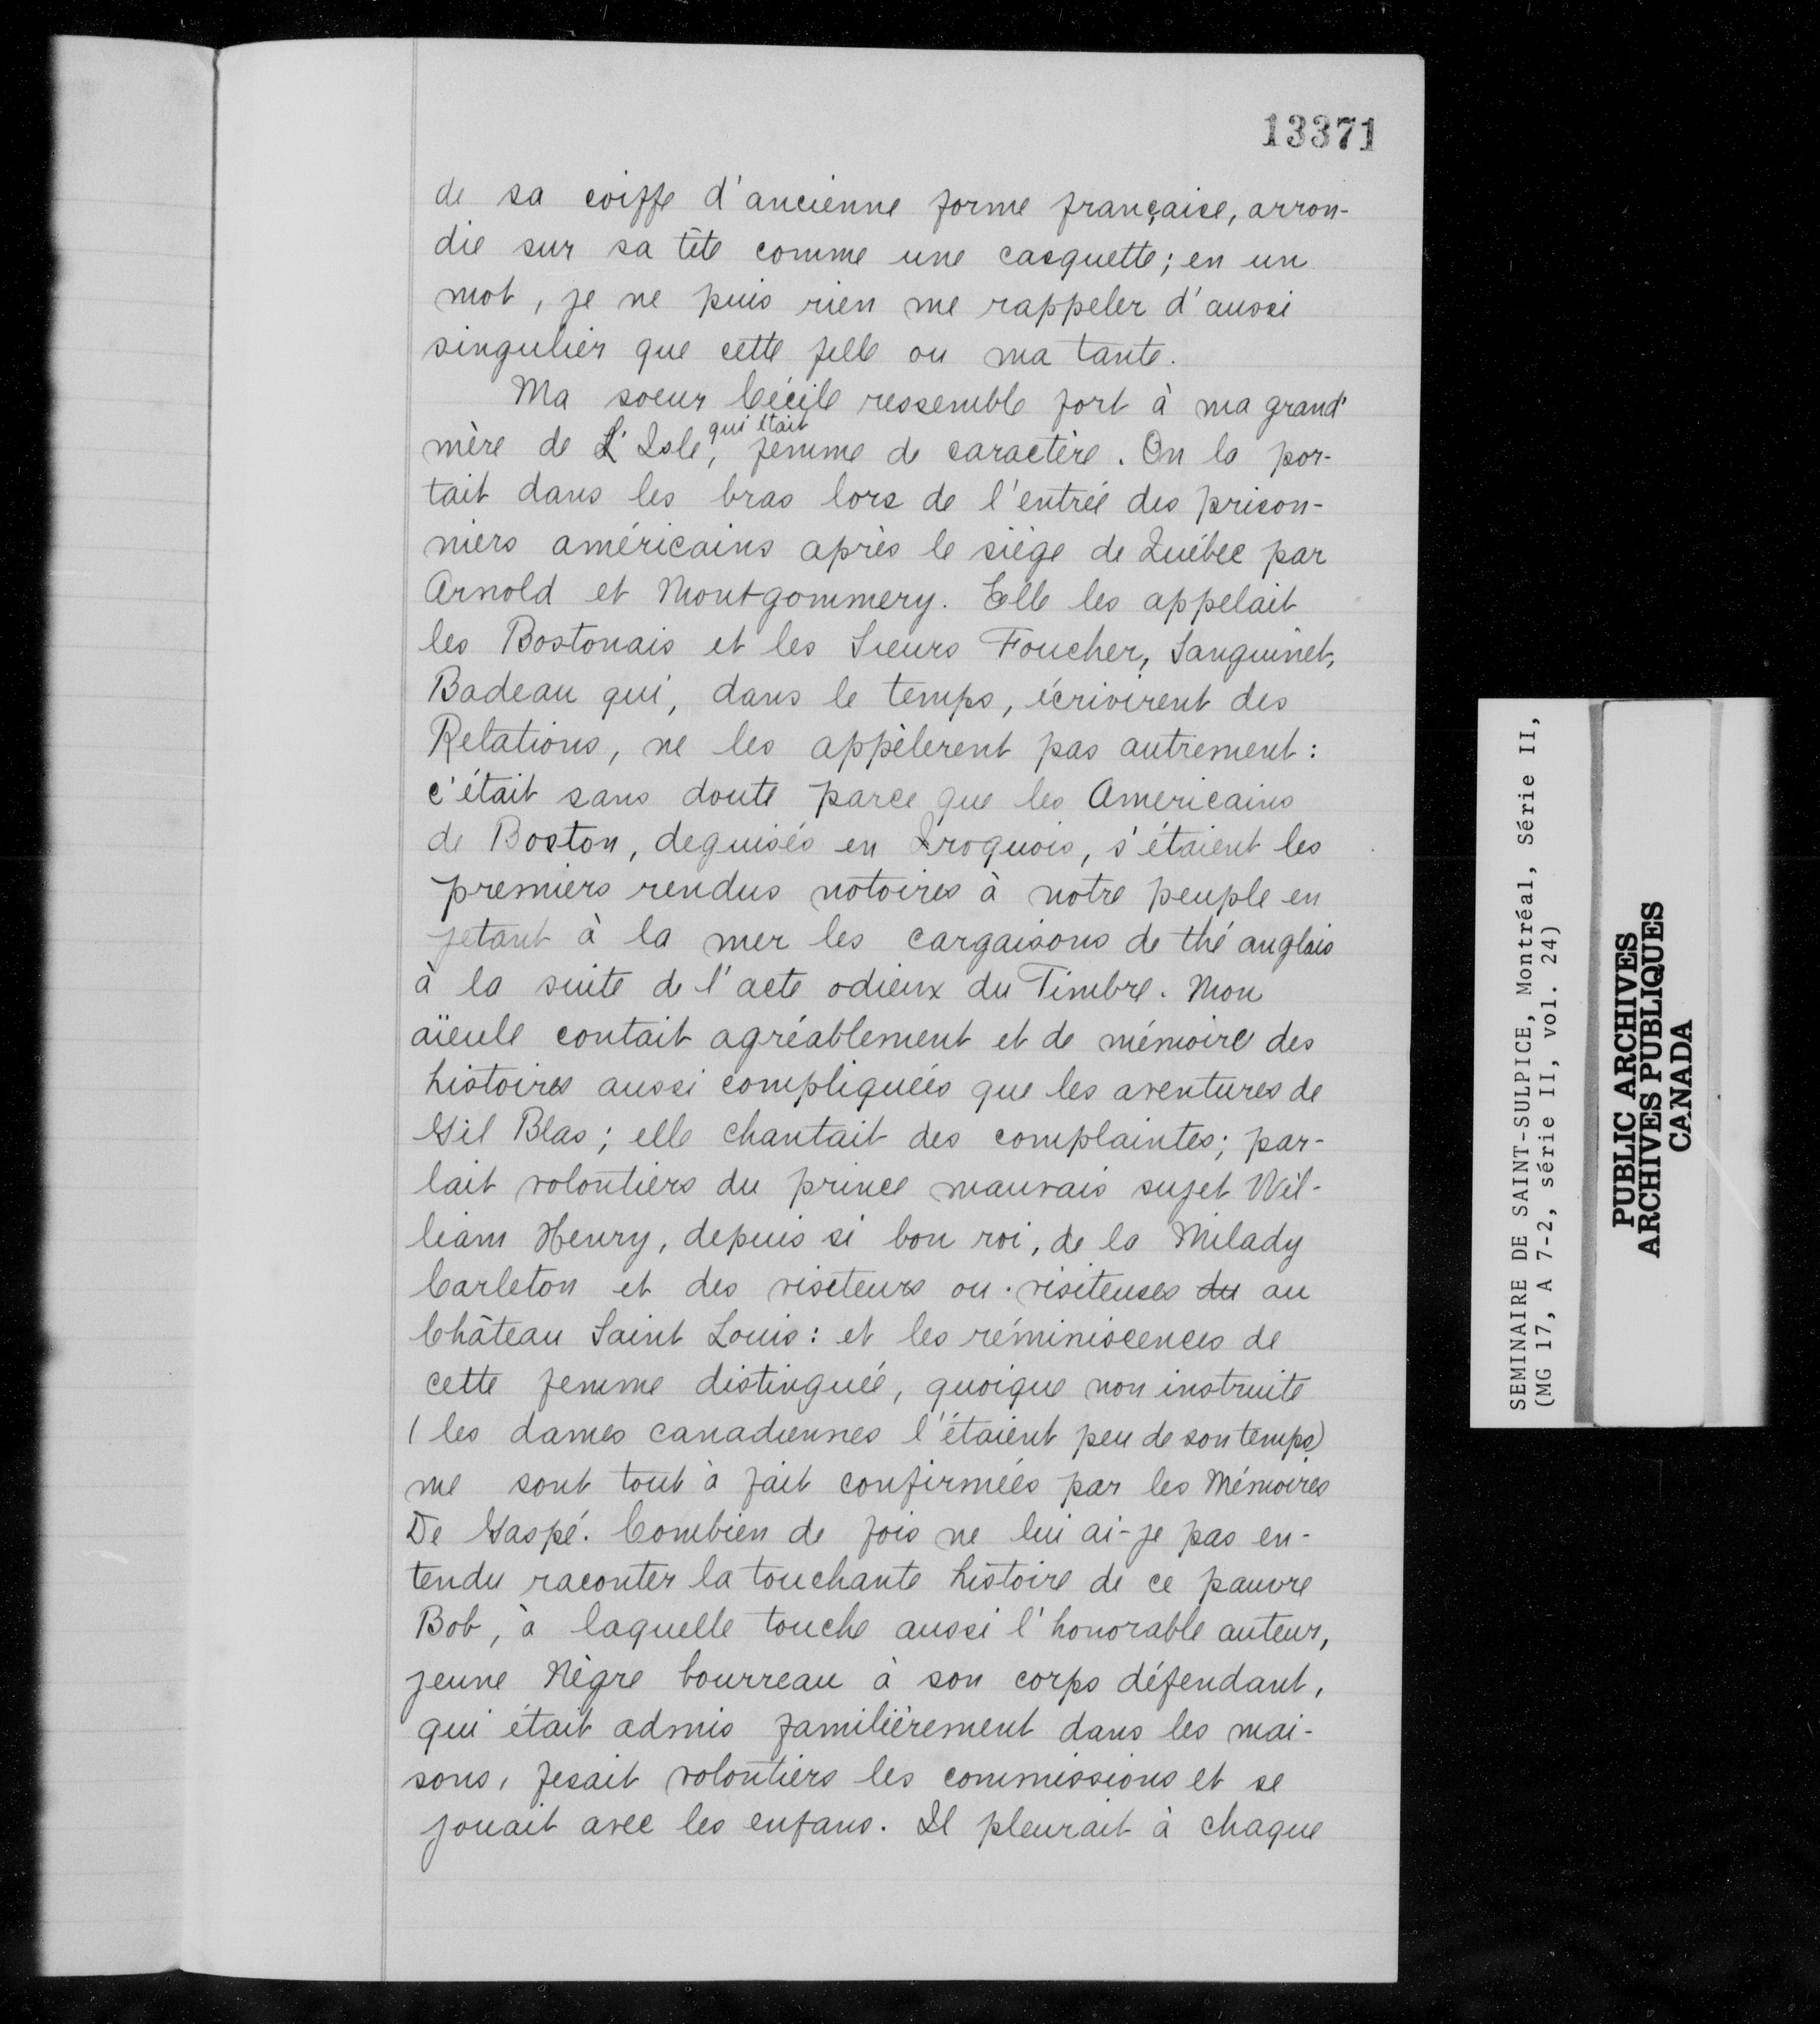 13371
de sa coiffe d'ancienne forme française, arron-
die sur sa tête comme une casquette; en un
mot, je ne puis rien me rappeler d'aussi
singulier que cette fille ou ma tante.
Ma soeur Cécile ressemble fort à ma grand'
mère de L'Isle, qui était femme de caractère. On la por-
tait dans les bras lors de l'entrée des prison-
niers américains après le siège de Québec par
Arnold et Montgommery. Elle les appelait
les Bostonais et les Sieurs Foucher, Sanguinet,
Badeau qui, dans le temps, écrivirent des
Relations, ne les appèlerent pas autrement:
c'était sans doute parce que les Americains
de Boston, deguisés en Iroquois, s'étaient les
premiers rendus notoires à notre peuple en
jetant à la mer les cargaisons de thé anglais
à la suite de l'acte odieux du Timbre. Mon
aïeule contait agréablement et de mémoire des
histoires aussi compliquées que les aventures de
Gil Blas; elle chantait des complaintes; par-
lait volontiers du prince mauvais sujet Wil-
liam Henry, depuis si bon roi, de la Milady
Carleton et des visiteurs ou visiteuses du au
Château Saint Louis: et les réminiscences de
cette femme distinguée, quoique non instruite
(les dames canadiennes l'étaient peu de son temps)
me sont tout à fait confirmées par les Mémoires
De Gaspé. Combien de fois ne lui ai-je pas en-
tendu raconter la touchante histoire de ce pauvre
Bob, à laquelle touche aussi l'honorable auteur,
jeune Nègre bourreau à son corps défendant,
qui était admis familièrement dans les mai-
sons, fesait volontiers les commissions et se
jouait avec les enfans. Il pleurait à chaque
SEMINAIRE DE SAINT-SULPICE, Montréal, Série II,
(MG 17, A 7-2, série II, vol. 24)
PUBLIC ARCHIVES
ARCHIVES PUBLIQUES
CANADA